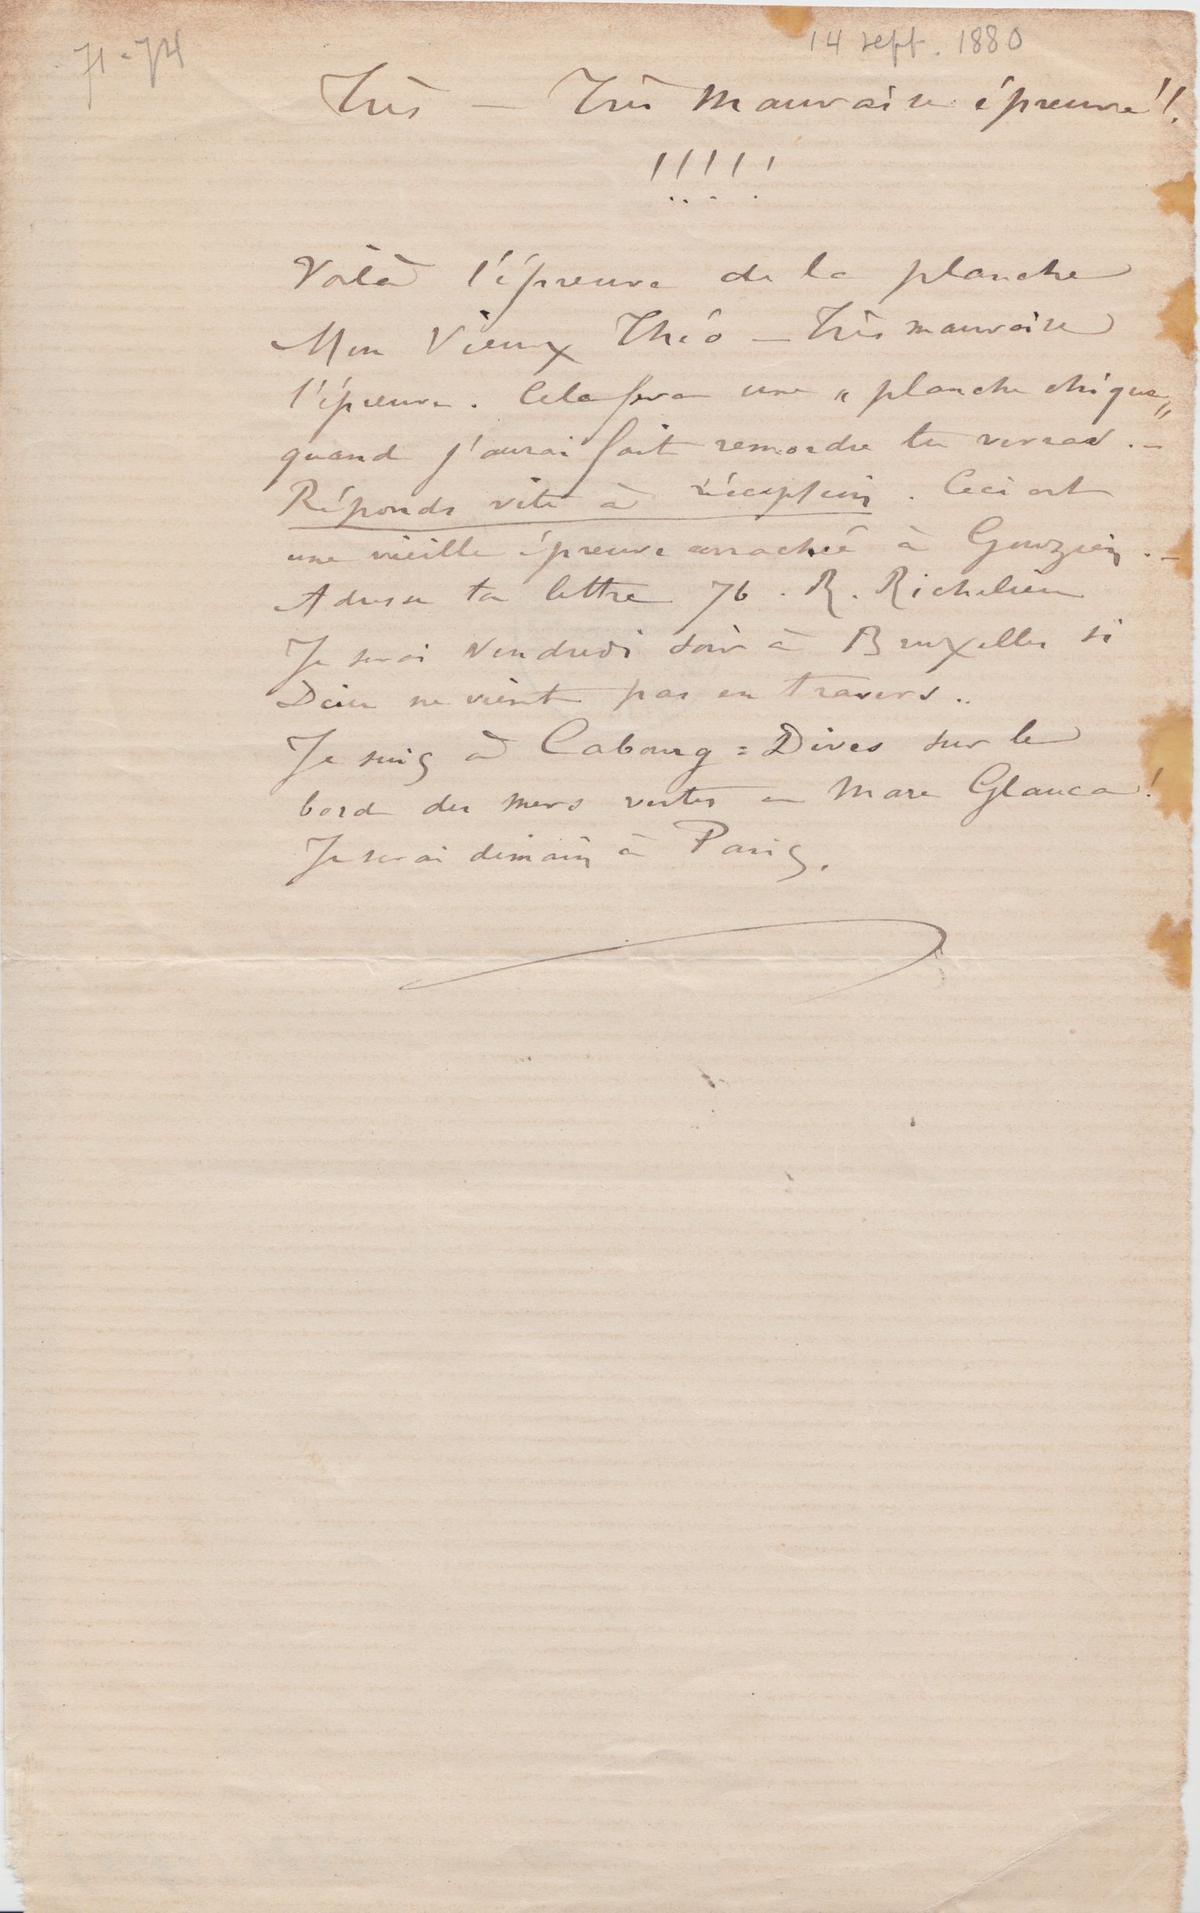 71-74
14 sept. 1880
Très — Très mauvaise épreuve!!
!!!!!
Voilà l'épreuve de la planche
Mon Vieux Théo — Très mauvaise
l'épreuve. Cela fera une „ planche chique „
quand j'aurai fait remordre tu verras. —
Réponds vite à réception. Ceci est
une vieille épreuve arrachée à Gouzien. —
Adresse ta lettre 76. R. Richelieu
Je serai Vendredi soir à Bruxelles si
Dieu ne vient pas en travers..
Je suis à Cabourg = Dives sur le
bord des mers vertes - Mare Glauca!
Je serai demain à Paris.